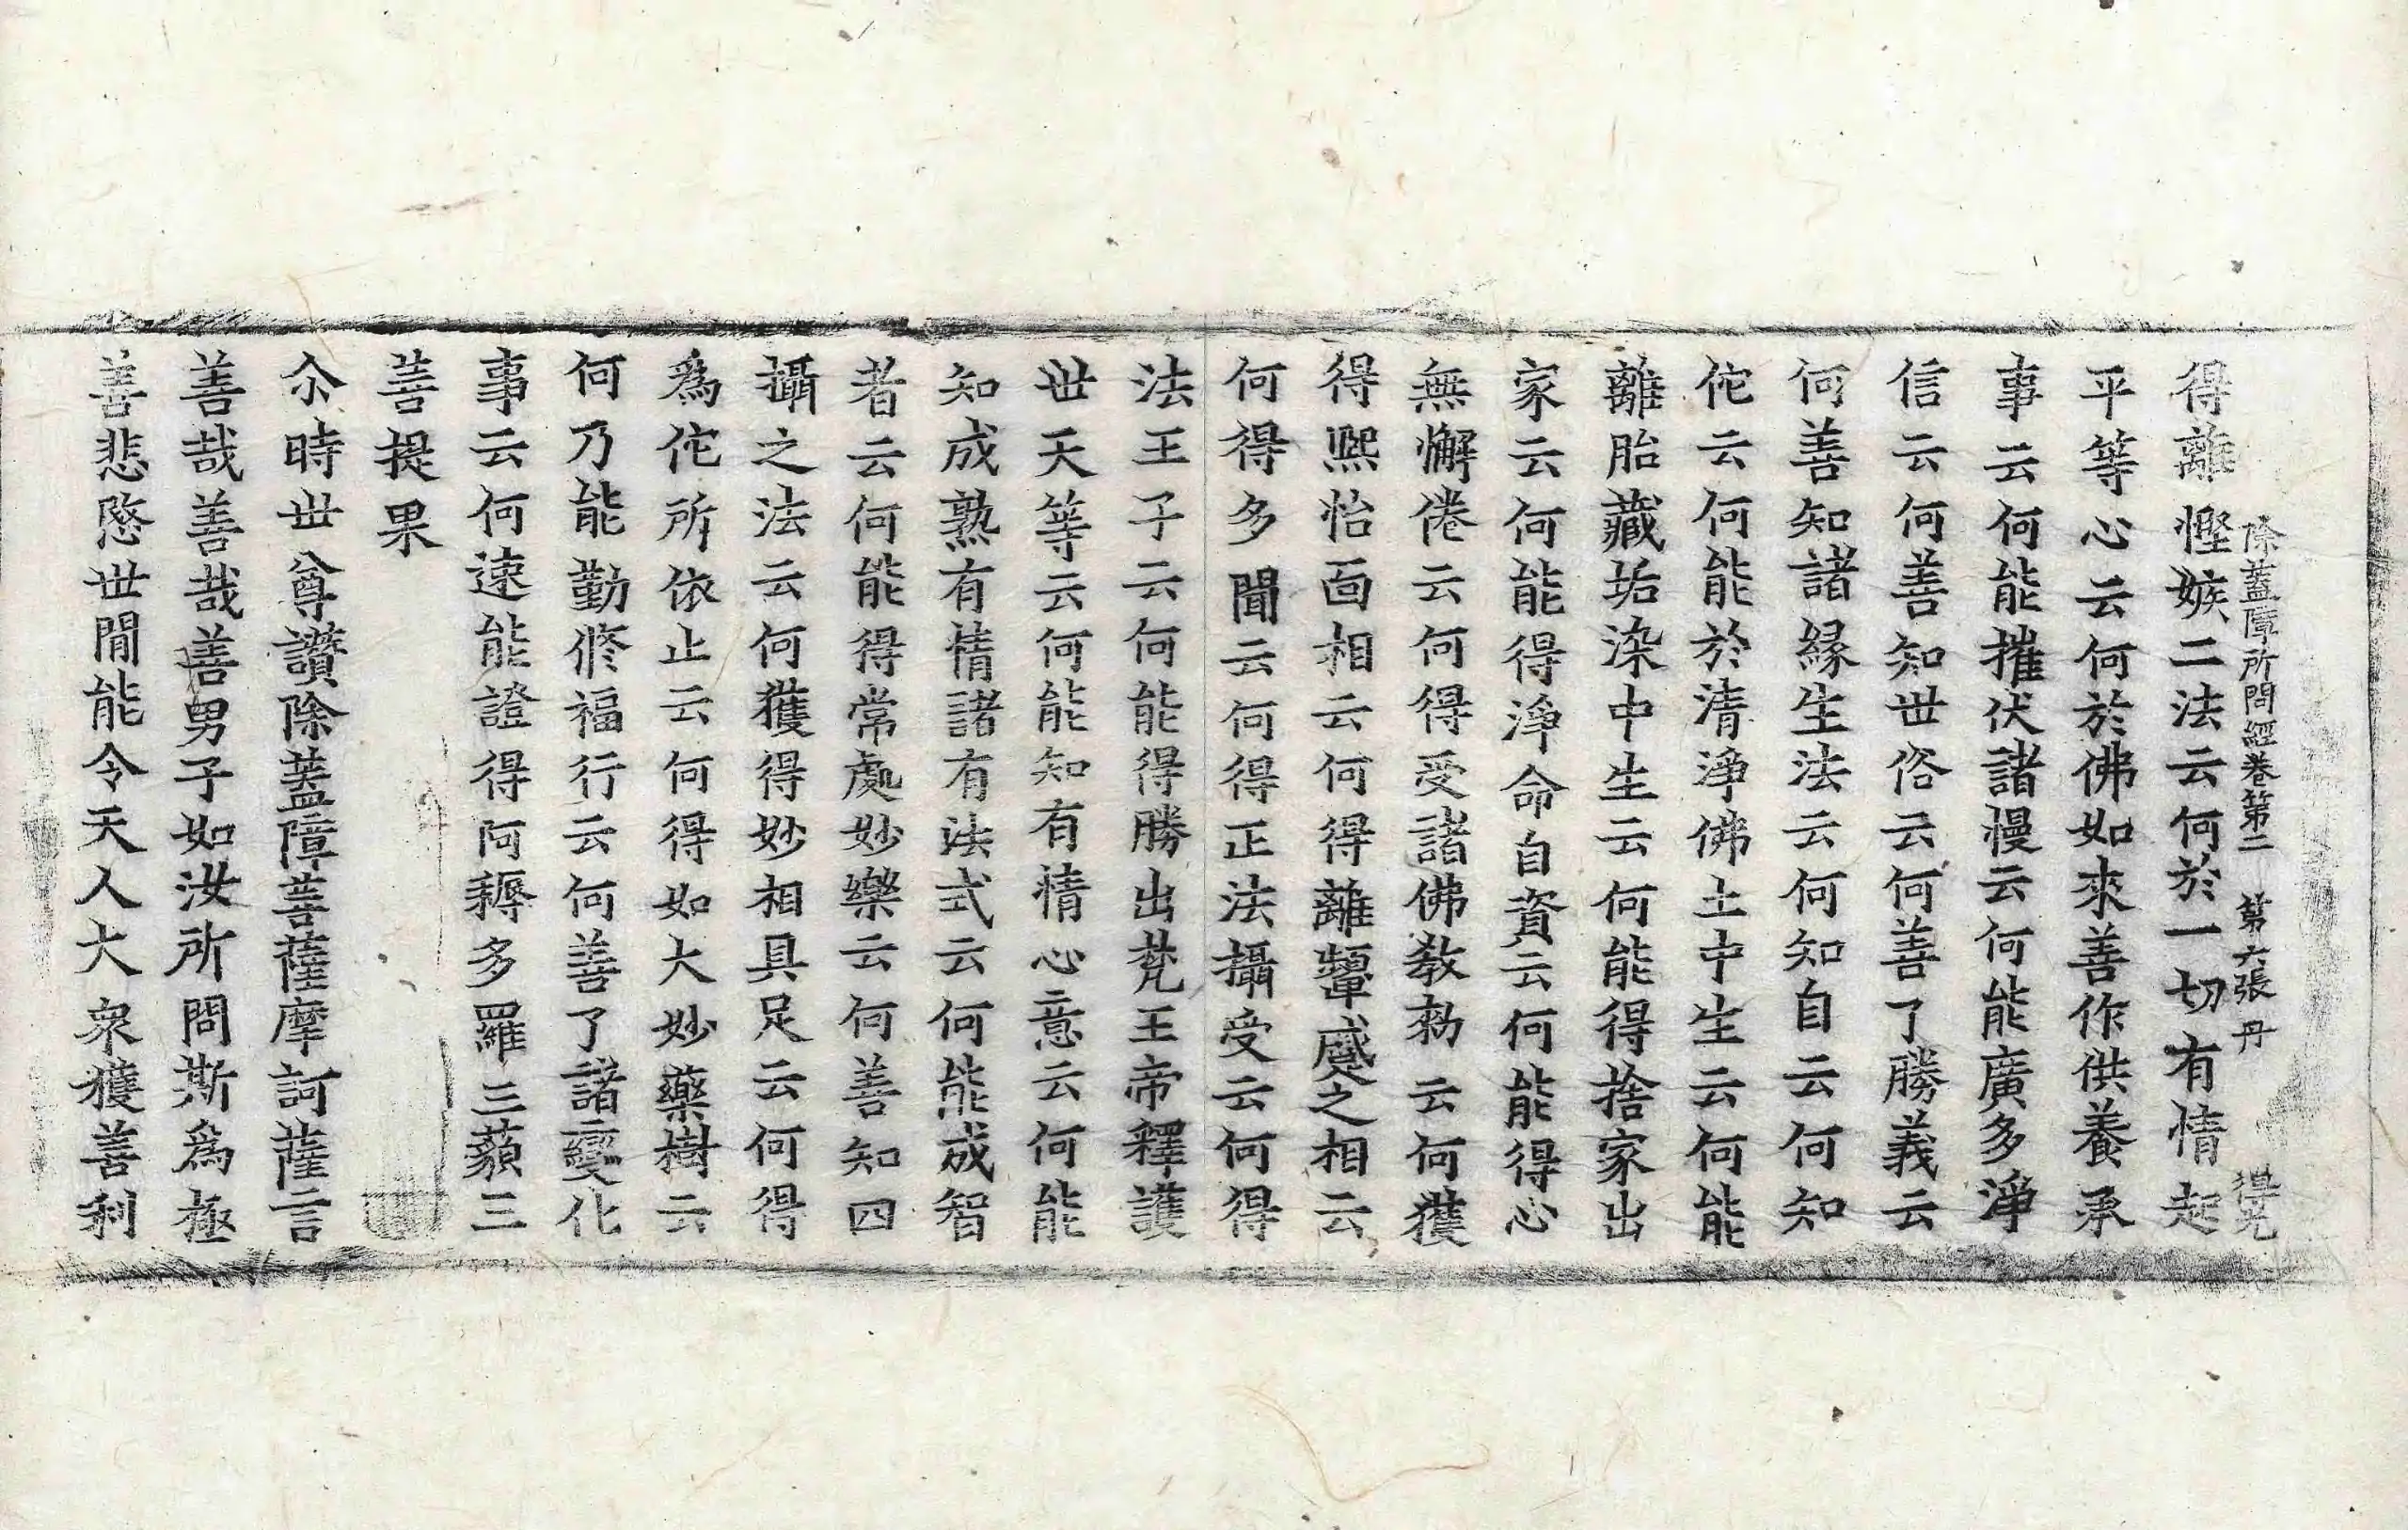 除蓋障所問經卷第二　第六張　丹　得光
得離慳嫉二法云何於一切有情起
平等心云何於佛如來善作供養承
事云何能摧伏諸慢云何能廣多淨
信云何善知世俗云何善了勝義云
何善知諸緣生法云何知自云何知
佗云何能於清淨佛土中生云何能
離胎藏垢染中生云何能得捨家出
家云何能得淨命自資云何能得心
無懈倦云何得受諸佛教勑云何獲
得熙怡面相云何得離顰蹙之相云
何得多聞云何得正法攝受云何得
法王子云何能得勝出梵王帝釋護
世天等云何能知有情心意云何能
知成熟有情諸有法式云何能成智
者云何能得常處妙樂云何善知四
攝之法云何獲得妙相具足云何得
爲佗所依止云何得如大妙藥樹云
何乃能勤修福行云何善了諸變化
事云何速能證得阿耨多羅三藐三
菩提果
尒時世尊讚除蓋障菩薩摩訶薩言
善哉善哉善男子如汝所問斯爲極
善悲愍世閒能令天人大衆獲善利